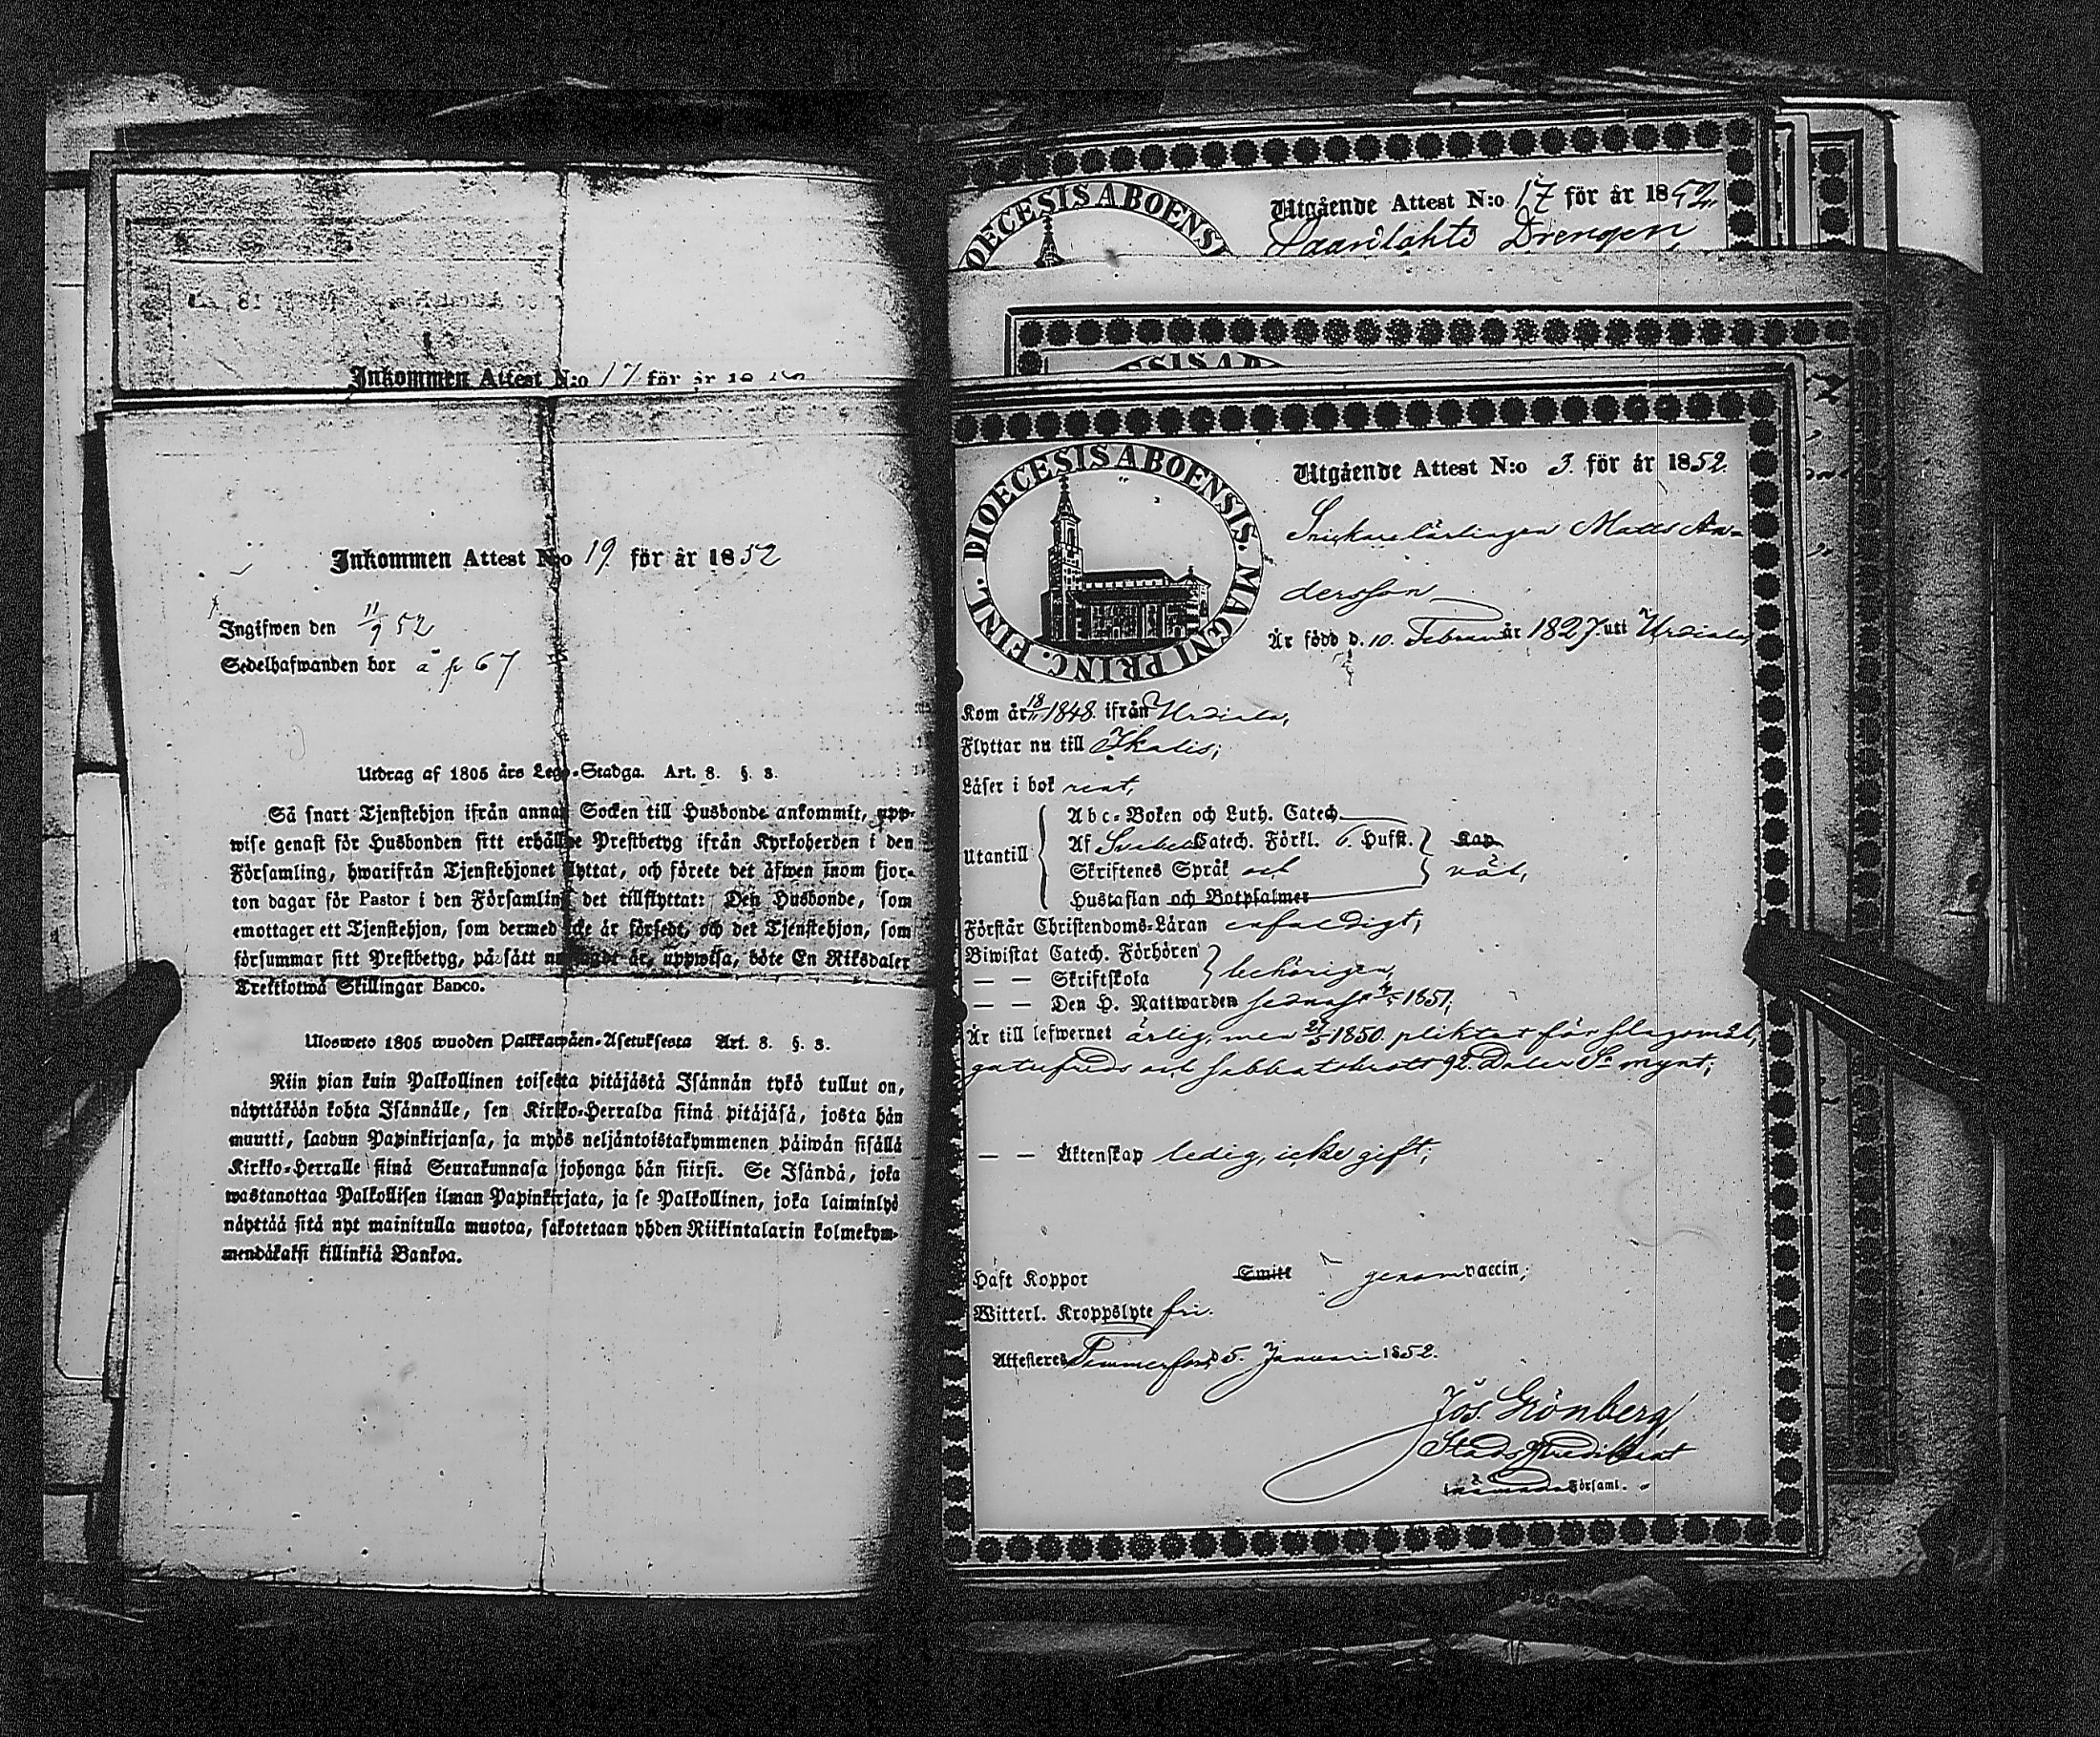 Inkommen Attest N:o 17 för år 18
Inkommen Attest N:o 19 för år 1852
Ingifwen den 11/9 52
Sedelhafwanden bor å p 67
Utdrag af 1805 års Lego-Stadga. Art. 8. §. 3.
Så snart Tjenstehjon ifrån annan Socken till Husbonde ankommit, upp-
wise genast för Husbonden sitt erhållne Prestbetyg ifrån Kyrkoherden i den
Församling, hwarifrån Tjenstehjonet flyttat, och förete det äfwen inom fjor-
ton dagar för Pastor i den Församling det tillflyttat: Den Husbonde, som
emottager ett Tjenstehjon, som dermed icke är försedt, och det Tjenstehjon, som
försummar sitt Prestbetyg, på sätt nu sagdt är, uppwisa, böte En Riksdaler
Trettiotwå Skillingar Banco.
Ulosweto 1805 wuoden Palkkawäen-Asetuksesta Art. 8. §. 3.
Niin pian kuin Palkollinen toisesta pitäjästä Isännän tykö tullut on,
näyttäköön kohta Isännälle, sen Kirkko-Herralda siinä pitäjäsä, josta hän
muutti, saadun Papinkirjansa, ja myös neljäntoistakymmenen päiwän sisällä
Kirkko-Herralle siinä Seurakunnasa johonga hän siirsi. Se Isändä, joka
wastanottaa Palkollisen ilman Papinkirjata, ja se Palkollinen, joka laiminlyö
näyttää sitä nyt mainitulla muotoa, sakotetaan yhden Riikintalarin kolmekym-
mendäkaksi killinkiä Bankoa.
DIOECESIS ABOENSI
Utgående Attest N:o 17 för år 1852
Saarilahti Drengen
SIS AB
FINL. DIOECESIS ABOENSIS. MAGNI PRINC.
Utgående Attest N:o 3. för år 1852.
Snickarelärlingen Matts An-
dersson
Är född d. 10. Februari år 1827. uti Urdiala,
Kom år 18/11 1848. ifrån Urdiala;
Flyttar nu till Ikalis;
Läser i bok rent,
Utantill
Abc-Boken och Luth. Catech.
Af Svebel. Catech. Förkl. 6. Hufst. Kap
Skriftenes Språk och väl,
Hustaflan och Botpsalmer
Förstår Christendoms-Läran enfaldigt,
Biwistat Catech. Förhören
— — Skriftskola behörigen,
— — Den H. Nattwarden sednast 1851;
Är till lefwernet ärlig, men 1850. pliktat för slagsmål,
gatufreds och sabbatsbrott 92. Daler S:r mynt;
— — Äktenskap ledig, icke gift;
Haft Koppor Smitt genom vaccin;
Witterl. Kroppslyte fri.
Attesteres Tammerfors d 5. Januari 1852.
Jos. Grönberg
Stads Predikant
Församl.